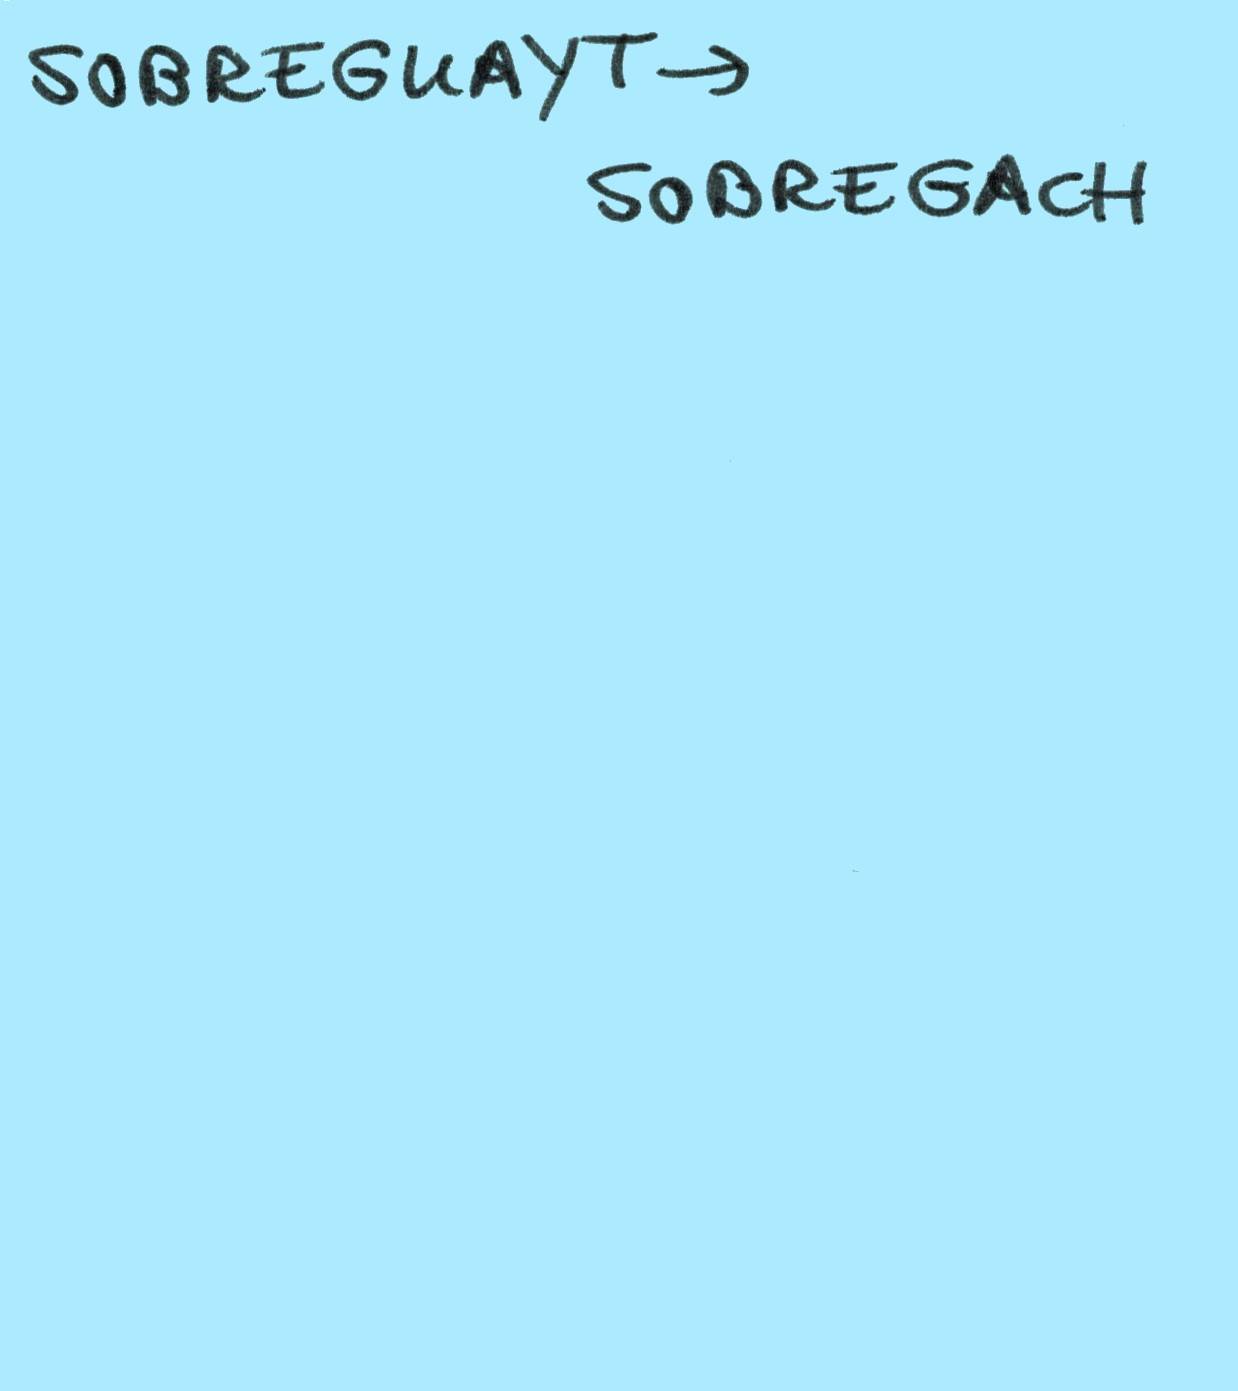 SOBREGUAYT→
SOBREGACH